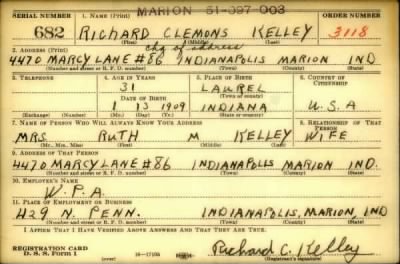 MARION 51-097-003
SERIAL NUMBER 1. NAME (Print) ORDER NUMBER
682 RICHARD CLEMONS KELLEY 3118
(First) (Middle) (Last)
chg of address
2. ADDRESS (Print)
4470 MARCY LANE #86 INDIANAPOLIS MARION IND
(Number and street or R. F. D. number) (Town) (County) (State)
3. TELEPHONE 4. AGE IN YEARS 5. PLACE OF BIRTH 6. COUNTRY OF CITIZENSHIP
31 LAUREL
(Town or county)
DATE OF BIRTH
1 13 1909 INDIANA U.S.A
(Exchange) (Number) (Mo.) (Day) (Yr.) (State or country)
7. NAME OF PERSON WHO WILL ALWAYS KNOW YOUR ADDRESS 8. RELATIONSHIP OF THAT PERSON
MRS RUTH M KELLEY WIFE
(Mr., Mrs., Miss) (First) (Middle) (Last)
9. ADDRESS OF THAT PERSON
4470 MARCY LANE #86 INDIANAPOLIS MARION IND.
(Number and street or R. F. D. number) (Town) (County) (State)
10. EMPLOYER'S NAME
W.P.A.
11. PLACE OF EMPLOYMENT OR BUSINESS
429 N. PENN. INDIANAPOLIS, MARION, IND
(Number and street or R. F. D. number) (Town) (County) (State)
I AFFIRM THAT I HAVE VERIFIED ABOVE ANSWERS AND THAT THEY ARE TRUE.
REGISTRATION CARD
D. S. S. Form 1 16-17105 Richard C. Kelley
(Registrant's signature)